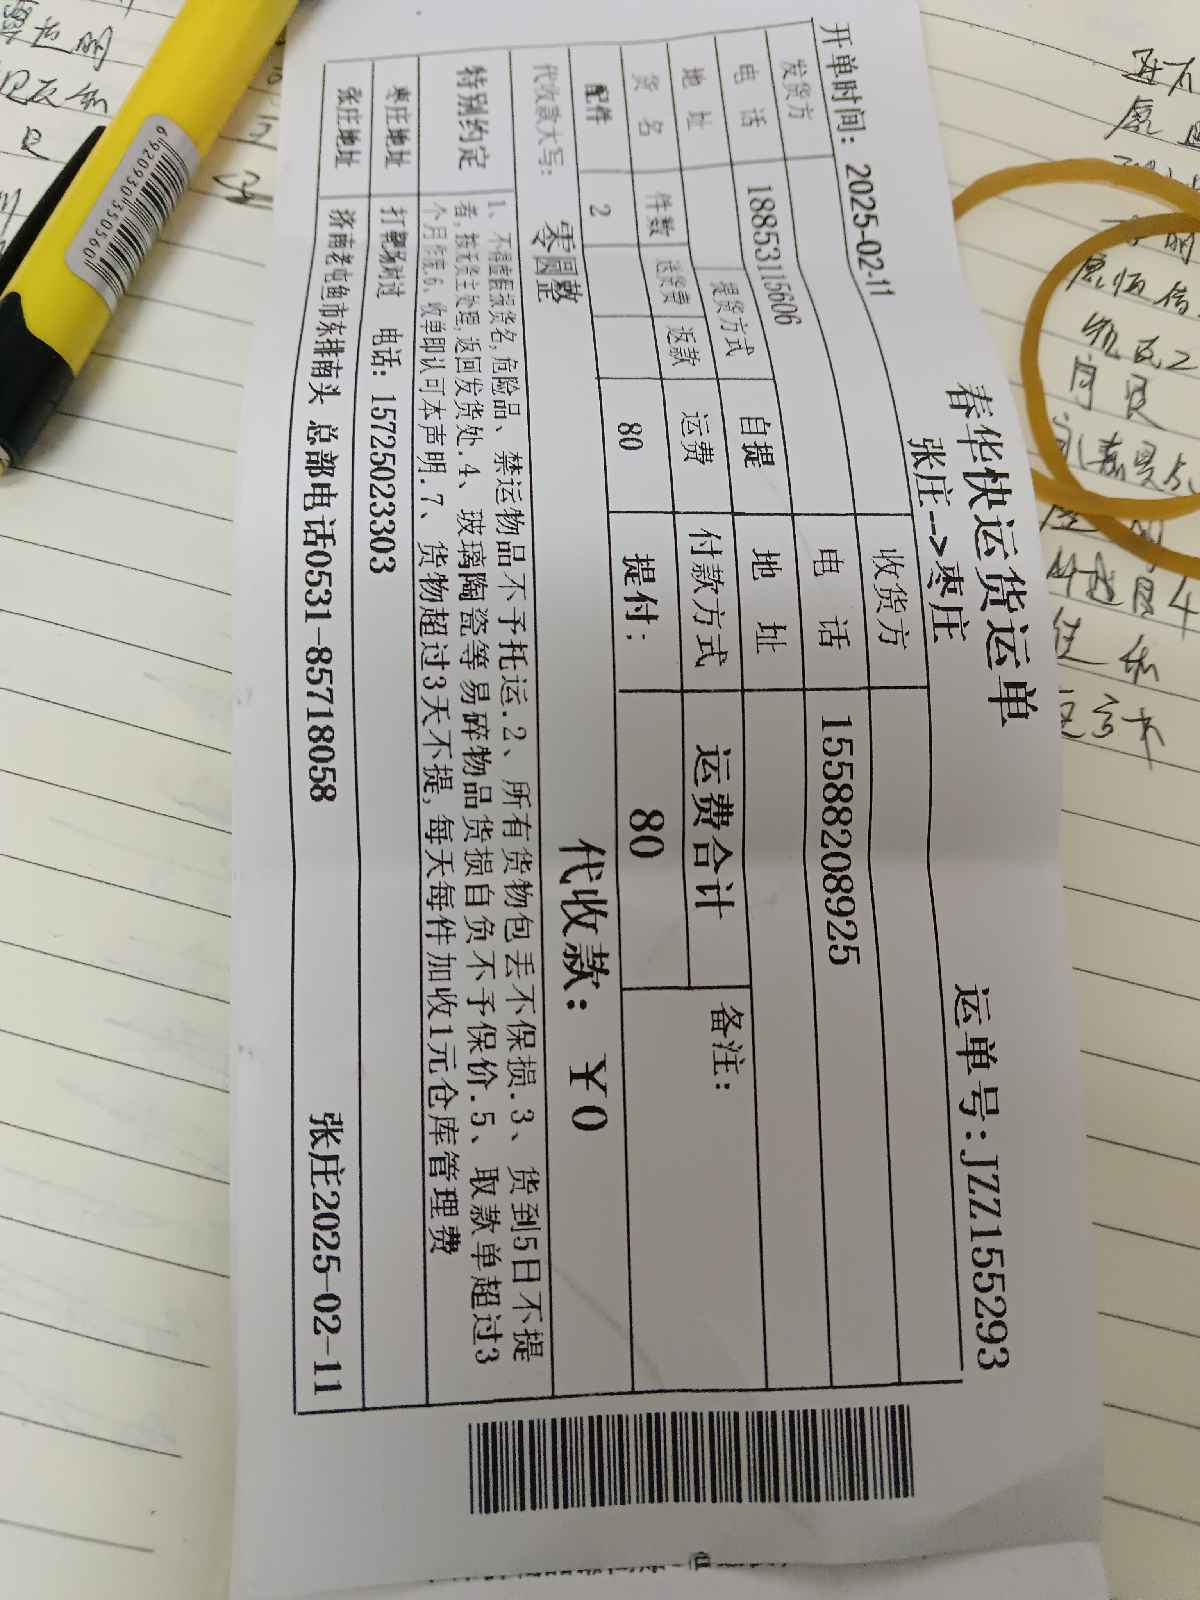 春华快运货运单
开单时间: 2025-02-11 张庄-->枣庄 运单号:JZZ155293
发货方 收货方
电 话 18853115606 电 话 15588208925
地 址 提货方式 自提 地 址
货 名 件数 送货费 返款 运费 付款方式 运费合计 备注:
配件 2 80 提付: 80
代收款大写: 零圆整 代收款: ¥0
特别约定 1、不得虚报货名,危险品、禁运物品不予托运.2、所有货物包丢不保损.3、货到5日不提
者,按无货主处理,返回发货处.4、玻璃陶瓷等易碎物品货损自负不予保价.5、取款单超过3
个月作废.6、收单即认可本声明.7、货物超过3天不提,每天每件加收1元仓库管理费
枣庄地址 打靶场对过 电话: 15725023303
张庄地址 济南老屯鱼市东排南头 总部电话0531-85718058 张庄2025-02-11
6 920930 350560